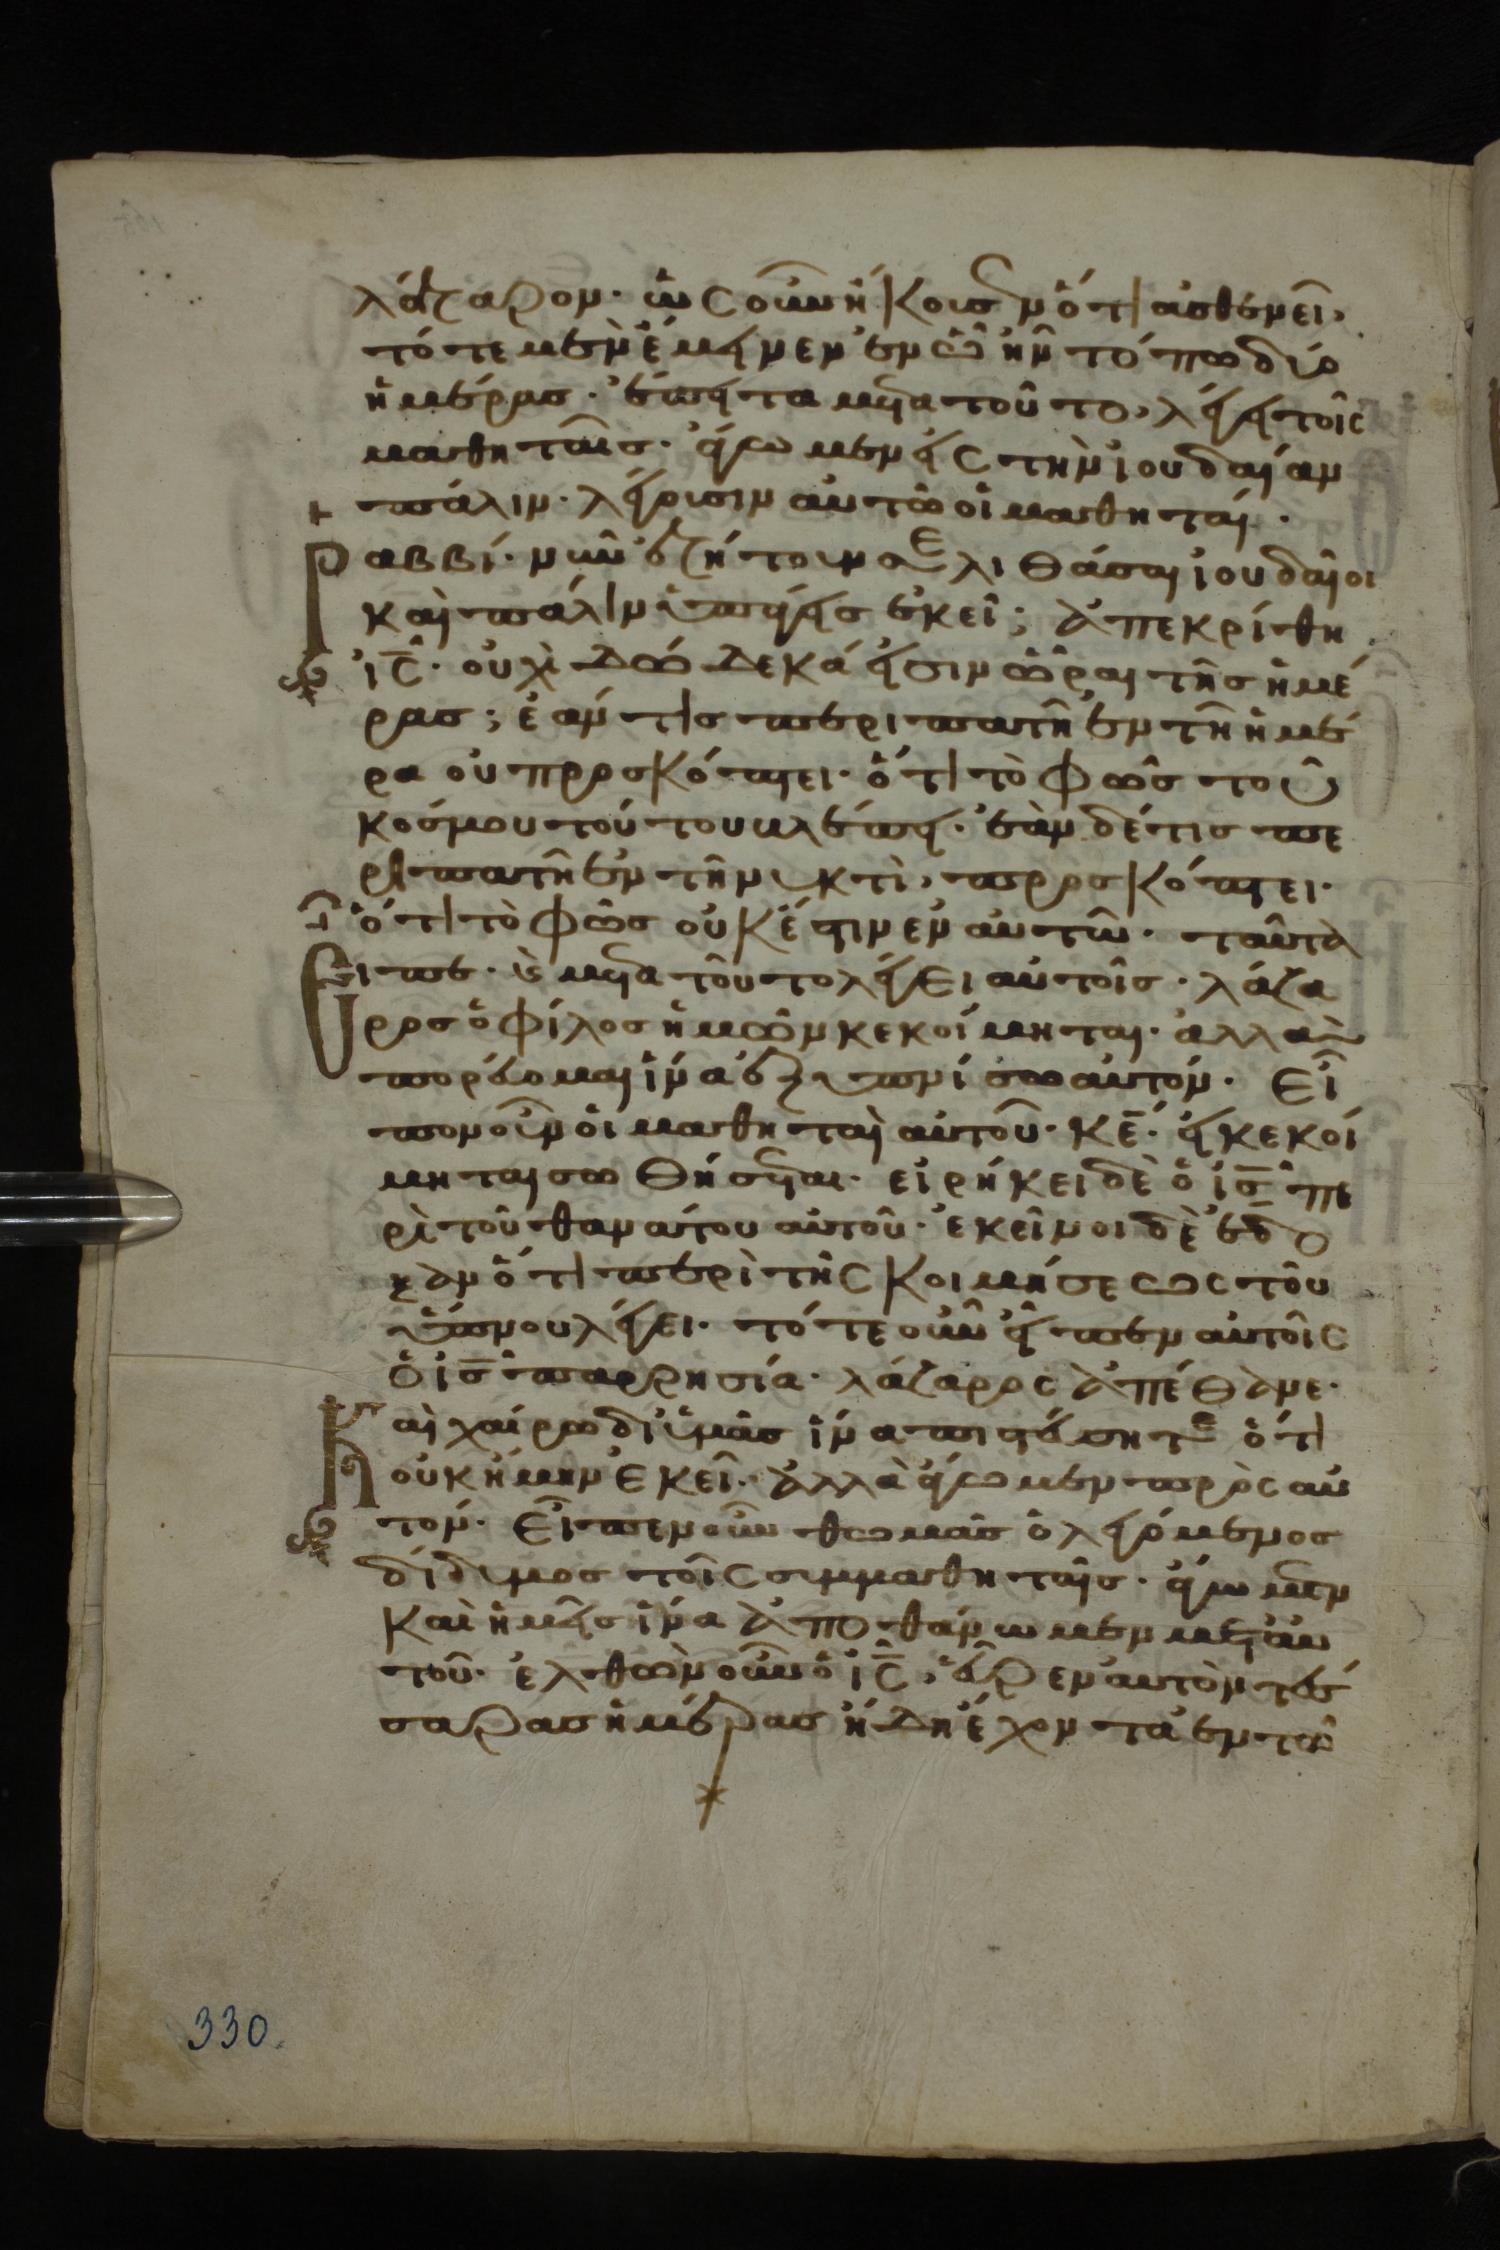 λάζαρον· ὡς οὖν ἤκουσεν ὅτι ἀσθενεῖ,
τότε μὲν ἔμεινεν ἐν ᾧ ἦν τόπω δύο
ἡμέρας· ἔπειτα μετα τοῦτο, λέγει τοῖς
μαθηταῖς· ἄγωμεν εἰς τὴν ἰουδαίαν
πάλιν· λέγουσιν αὐτῶ οἱ μαθηταί·
Ραββί· νῦν ἐζήτουν σε λιθάσαι ἰουδαῖοι
καὶ πάλιν ὑπάγεις ἐκεῖ; ἀπεκρίθη
ἰς̅· οὐχὶ δώδεκά εἰσιν ὧραι τῆς ἡμέ
ρας; ἐάν τις περιπατῆ ἐν τῆ ἡμέ
ρα οὐ προσκόπτει· ὅτι τὸ φῶς τοῦ
κόσμου τούτου βλέπει· ἐὰν δέ τις πε
ριπατῆ ἐν τῆ νυκτὶ, προσκόπτει·
ὅτι τὸ φῶς οὐκ ἔστιν ἐν αὐτῶ· ταῦτα
Εἶπε· καὶ μετα τοῦτο λέγει αὐτοῖς· λάζα
ρος ὁ φίλος ἡμῶν κεκοίμηται· ἀλλὰ
πορεύομαι ἵνα ἐξυπνίσω αὐτόν· Εἶ
πον οὖν οἱ μαθηταὶ αὐτοῦ· κε̅· εἰ κεκοί
μηται σωθήσεται· εἰρήκει δὲ ὁ ἰς̅ πε
ρὶ τοῦ θανάτου αὐτοῦ· ἐκεῖνοι δὲ ἔδο
ξαν ὅτι περὶ τῆς κοιμήσεως τοῦ
ὕπνου λέγει· τότε οὖν εἶπεν αὐτοῖς
ὁ ἰς̅ παρρησία· λάζαρος ἀπέθανε·
Καὶ χαίρω δι ὑμᾶς ἵνα πιστεύσητε ὅτι
οὐκ ἤμην ἐκεῖ· ἀλλὰ ἄγωμεν πρὸς αὐ
τόν· Εἶπεν οὖν θωμᾶς ὁ λεγόμενος
δίδυμος τοῖς συμμαθηταῖς· ἄγωμεν
καὶ ἡμεῖς ἵνα ἀποθάνωμεν μετ αὐ
τοῦ· ἐλθὼν οὖν ὁ ἰς̅, εὗρεν αὐτὸν τέσ
σαρας ἡμέρας ἤδη ἔχοντα ἐν τῶ
330